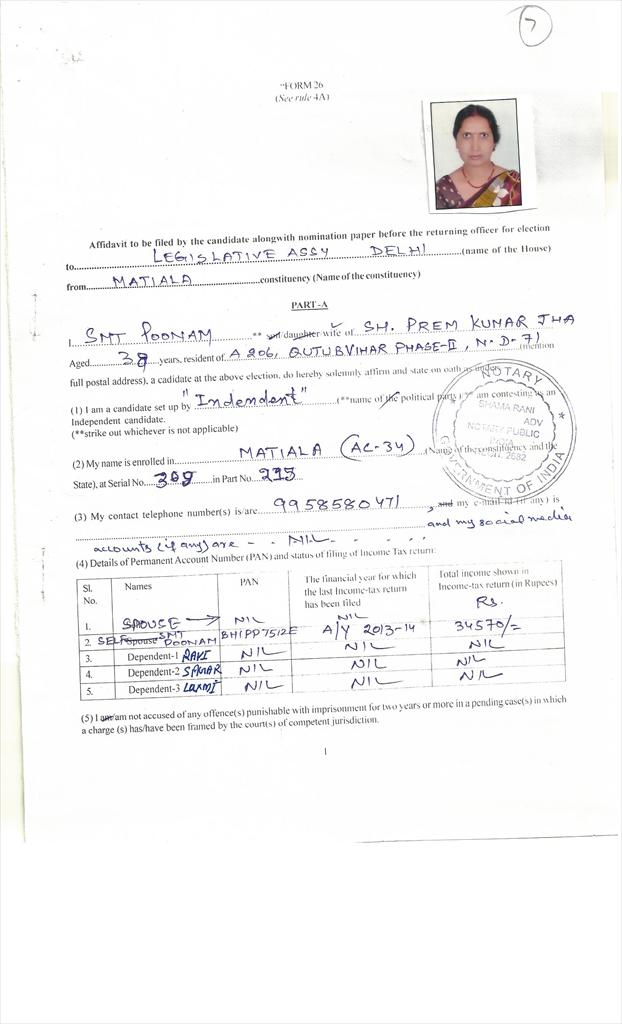 7
"FORM 26
(See rule 4A)
Affidavit to be filed by the candidate alongwith nomination paper before the returning officer for election
to LEGISLATIVE ASSY DELHI (name of the House)
from MATIALA constituency (Name of the constituency)
PART-A
I SMT POONAM ** son/daughter/wife of SH. PREM KUMAR JHA
Aged 38 years, resident of A 206, QUTUBVIHAR PHASE-II, N. D-71 (mention
full postal address), a cadidate at the above election, do hereby solemnly affirm and state on oath as under
(1) I am a candidate set up by "Indendent" (**name of the political party)/** am contesting as an
Independent candidate.
(**strike out whichever is not applicable)
(2) My name is enrolled in MATIALA (AC-34) (Name of the constituency and the
State), at Serial No. 309 in Part No.
(3) My contact telephone number(s) is/are 9958580471, and my e-mail id (if any) is
and my social media
accounts (if any) are - - NIL - . . . .
(4) Details of Permanent Account Number (PAN) and status of filing of Income Tax return:
Sl. No. Names PAN The financial year for which the last Income-tax return has been filed Total income shown in Income-tax return (in Rupees) Rs.
1. SPOUSE → NIL NIL
2. SELF Spouse SMT POONAM BHIPP7512E A/Y 2013-14 34570/=
3. Dependent-1 RAVI NIL NIL NIL
4. Dependent-2 SAGAR NIL NIL NIL
5. Dependent-3 LAXMI NIL NIL NIL
(5) I am/am not accused of any offence(s) punishable with imprisonment for two years or more in a pending case(s) in which
a charge (s) has/have been framed by the court(s) of competent jurisdiction.
1
NOTARY
SHAMA RANI
ADV
NOTARY PUBLIC
INDIA
2682
GOVERNMENT OF INDIA